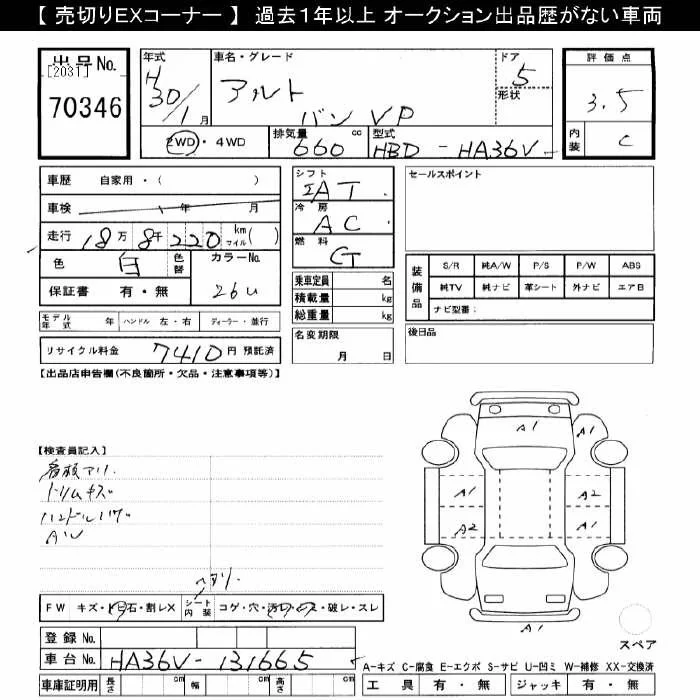 【 売切りEXコーナー 】 過去1年以上 オークション出品歴がない車両
出品No. [2031] 70346
年式 H30/1月
車名・グレード アルト バン VP
ドア 5
形状
評価点 3.5
内装 C
2WD・4WD
排気量 660 cc
型式 HBD-HA36V
車歴 自家用・( )
車検 年 月
走行 18万8千220 km マイル( )
色 白 色替
カラーNo. 26U
保証書 有・無
シフト IAT
冷房 AC
燃料 G
乗車定員 名
積載量 kg
総重量 kg
セールスポイント
装備品 S/R 純A/W P/S P/W ABS
純TV 純ナビ 革シート 外ナビ エアB
ナビ型番:
モデル年式 年 ハンドル 左・右 ディーラー・並行
名変期限 月 日
後日品
リサイクル料金 7410 円 預託済
【出品店申告欄(不良箇所・欠品・注意事項等)】
【検査員記入】
看板アリ.
トリムキズ
AW
A1
A1 A2
A2 A1
A1
FW キズ・トビ石・割レX シート内装 コゲ・穴・汚レ・スレ・破レ・スレ
スペア
登録 No.
車台 No. HA36V-131665
A-キズ C-腐食 E-エクボ S-サビ U-凹ミ W-補修 XX-交換済
車庫証明用 長さ cm 幅 cm 高さ cm
工具 有・無 ジャッキ 有・無